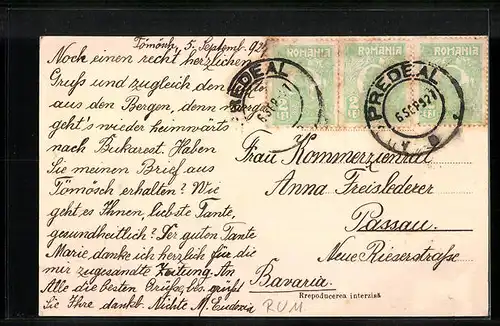 Tömösch, 5. Septemb. 927
Noch einen recht herzlichen
Gruß und zugleich den
aus den Bergen, denn
geht's wieder heimwärts
nach Bukarest. Haben
Sie meinen Brief aus
Tömösch erhalten? Wie
geht es Ihnen, liebste Tante,
gesundheitlich? Der guten Tante
Marie danke ich herzlich für die
mir zugesandte Zeitung. An
Alle die besten Grüße, bes. grüßt
Sie Ihre dankb. Nichte M. Eudoxia
ROMANIA ROMANIA ROMANIA
2 LEI 2 LEI 2 LEI
PREDEAL
6 SEP 927
PREDEAL
6 SEP 927
Frau Kommerzienrat
Anna Freislederer
Passau.
Neue Rieserstraße
Bavaria.
Repoducerea interzisă
RUM